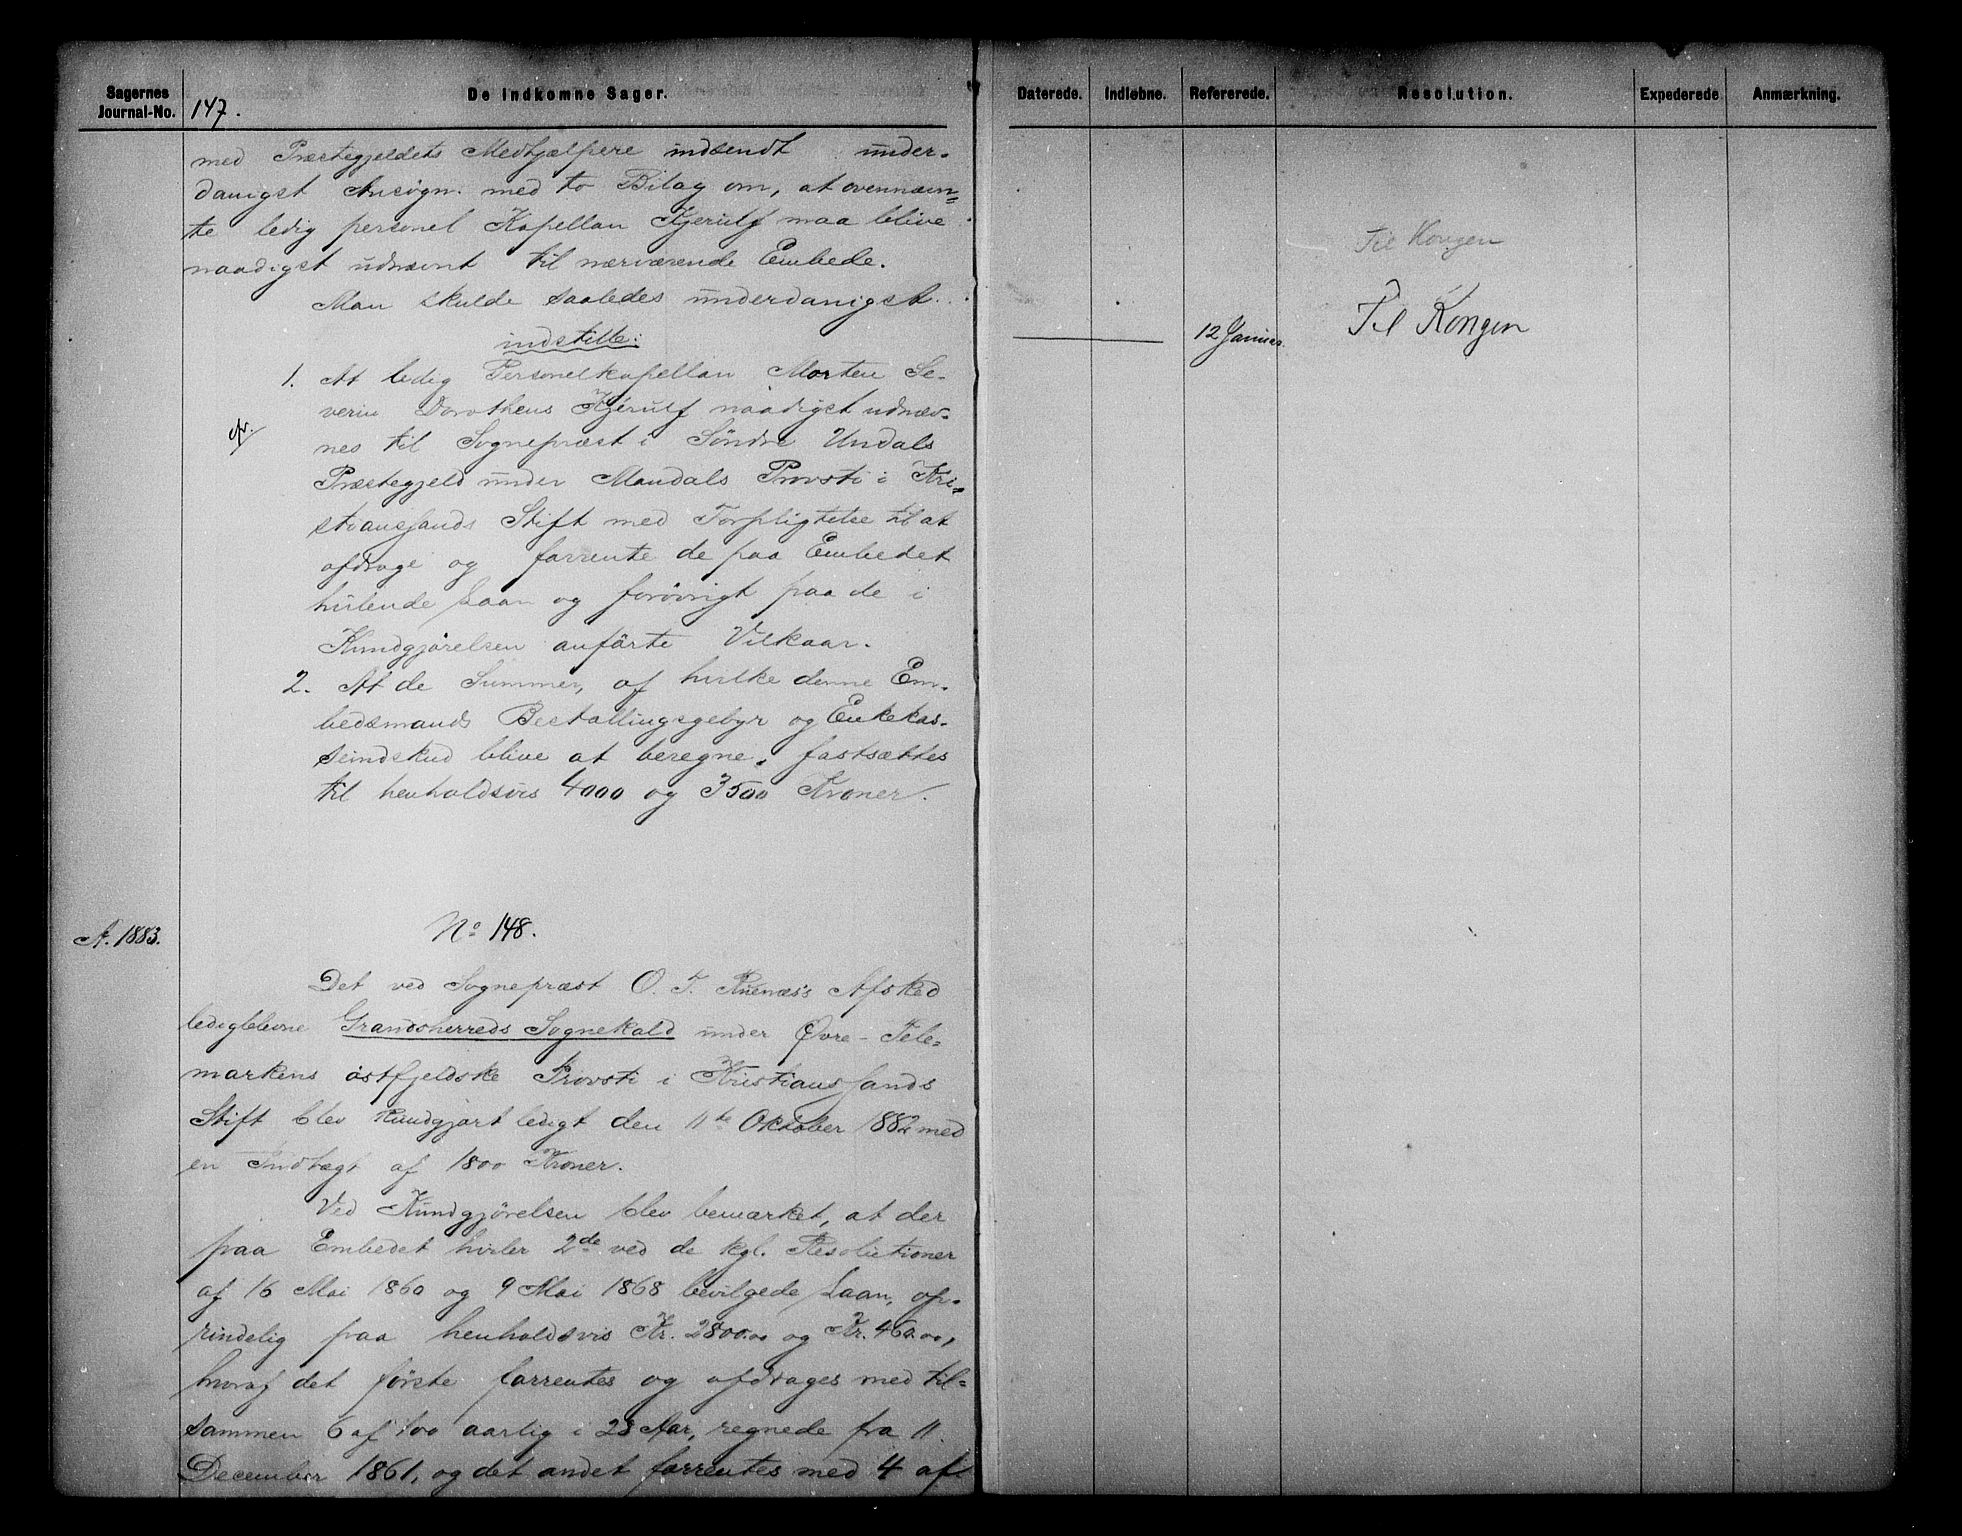 Sagernes
Journal-No.
147.
De Indkomne Sager.
med Præstegjeldets Medhjælpere indsendt under-
danigst Ansøgn. med to Bilag om, at ovennævn=
te ledig personel Kapellan Kjerulf maa blive
naadigst udnævnt til nærværende Embede.
Man skulde saaledes underdanigst
indstille:
1. At ledig Personelkapellan Morten Se-
verin Dorotheus Kjerulf naadigst udnæv-
cfr.
nes til Sognepræst i Søndre Undals
Præstegjeld under Mandals Provsti i Kri-
stianssands Stift med Forpligtelse til at
afdrage og forrente de paa Embedet
hvilende Laan og forøvrigt paa de i
Kundgjørelsen anførte Vilkaar.
2. At de Summer, af hvilke denne Em-
bedsmands Bestallingsgebyr og Enkekas-
seindskud blive at beregne, fastsættes
til henholdsvis 4000 og 3500 Kroner.
A. 1883.
No 148.
Det ved Sognepræst O. T. Afsked
ledigblevne Gransherreds Sognekald under Øvre-Tele=
markens østfjeldske Provsti i Kristianssands
Stift blev kundgjort ledigt den 11te Oktober 1882 med
en Indtægt af 1800 Kroner.
Ved Kundgjørelsen blev bemærket, at der
paa Embedet hviler 2de ved de kgl. Resolutioner
af 16 Mai 1860 og 9 Mai 1868 bevilgede Laan, op-
rindelig paa henholdsvis Kr. 2800.00 og Kr. 460.00,
hvoraf det første forrentes og afdrages med til=
sammen 6 af 100 aarlig i 28 Aar, regnede fra 11
December 1861, og det andet forrentes med 4 af
Daterede.
Indløbne.
Refererede.
Resolution.
Expederede
Anmærkning.
Til Kongen
12 Januar.
Til Kongen